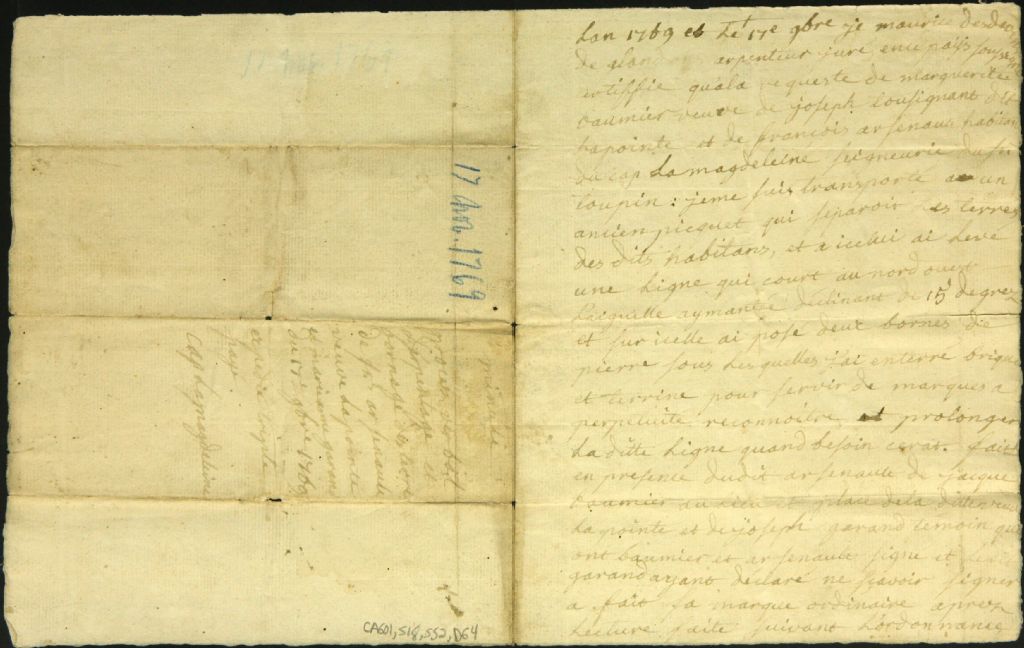 17 nov. 1769
17 Nov. 1769
minute
procez verbal
d'arpentage et
bornage de terre
de fs arsenault
veuve Lapointe
et
du 17e 9bre 1769
expedie
paye
Cap Lamagdeleine
CA601, S18, SS2, D64
Lan 1769 et Le 17e 9bre je maurice desdev
de glandons arpenteur juré en ce paÿs
certiffie qua la requeste de margueritte
baumier veuve de joseph Lousignant dit
Lapointe et de francois arsenault habitans
du cap La magdeleine seigneurie
loupin : je me suis transporté a un
ancien picquet qui separoit Les terres
des dits habitans, et a icelui ai Levé
une Ligne qui court au nord ouest
Laiguille aymantée declinant de 15d degrez
et sur icelle ai posé deux bornes de
pierre sous Lesquelles j'ai enterré brique
et terrine pour servir de marques a
perpetuité reconnoitre et prolonger
La ditte Ligne quand besoin cerat. fait
en presence dudit arsenault de jacque
baumier au Lieu et place de la ditte veuve
La pointe et de joseph garand temoin qui
ont baumier et arsenault signé et Ledit
garand ayant declaré ne scavoir signer
a fait sa marque ordinaire aprez
Lecture faite suivant L'ordonnance